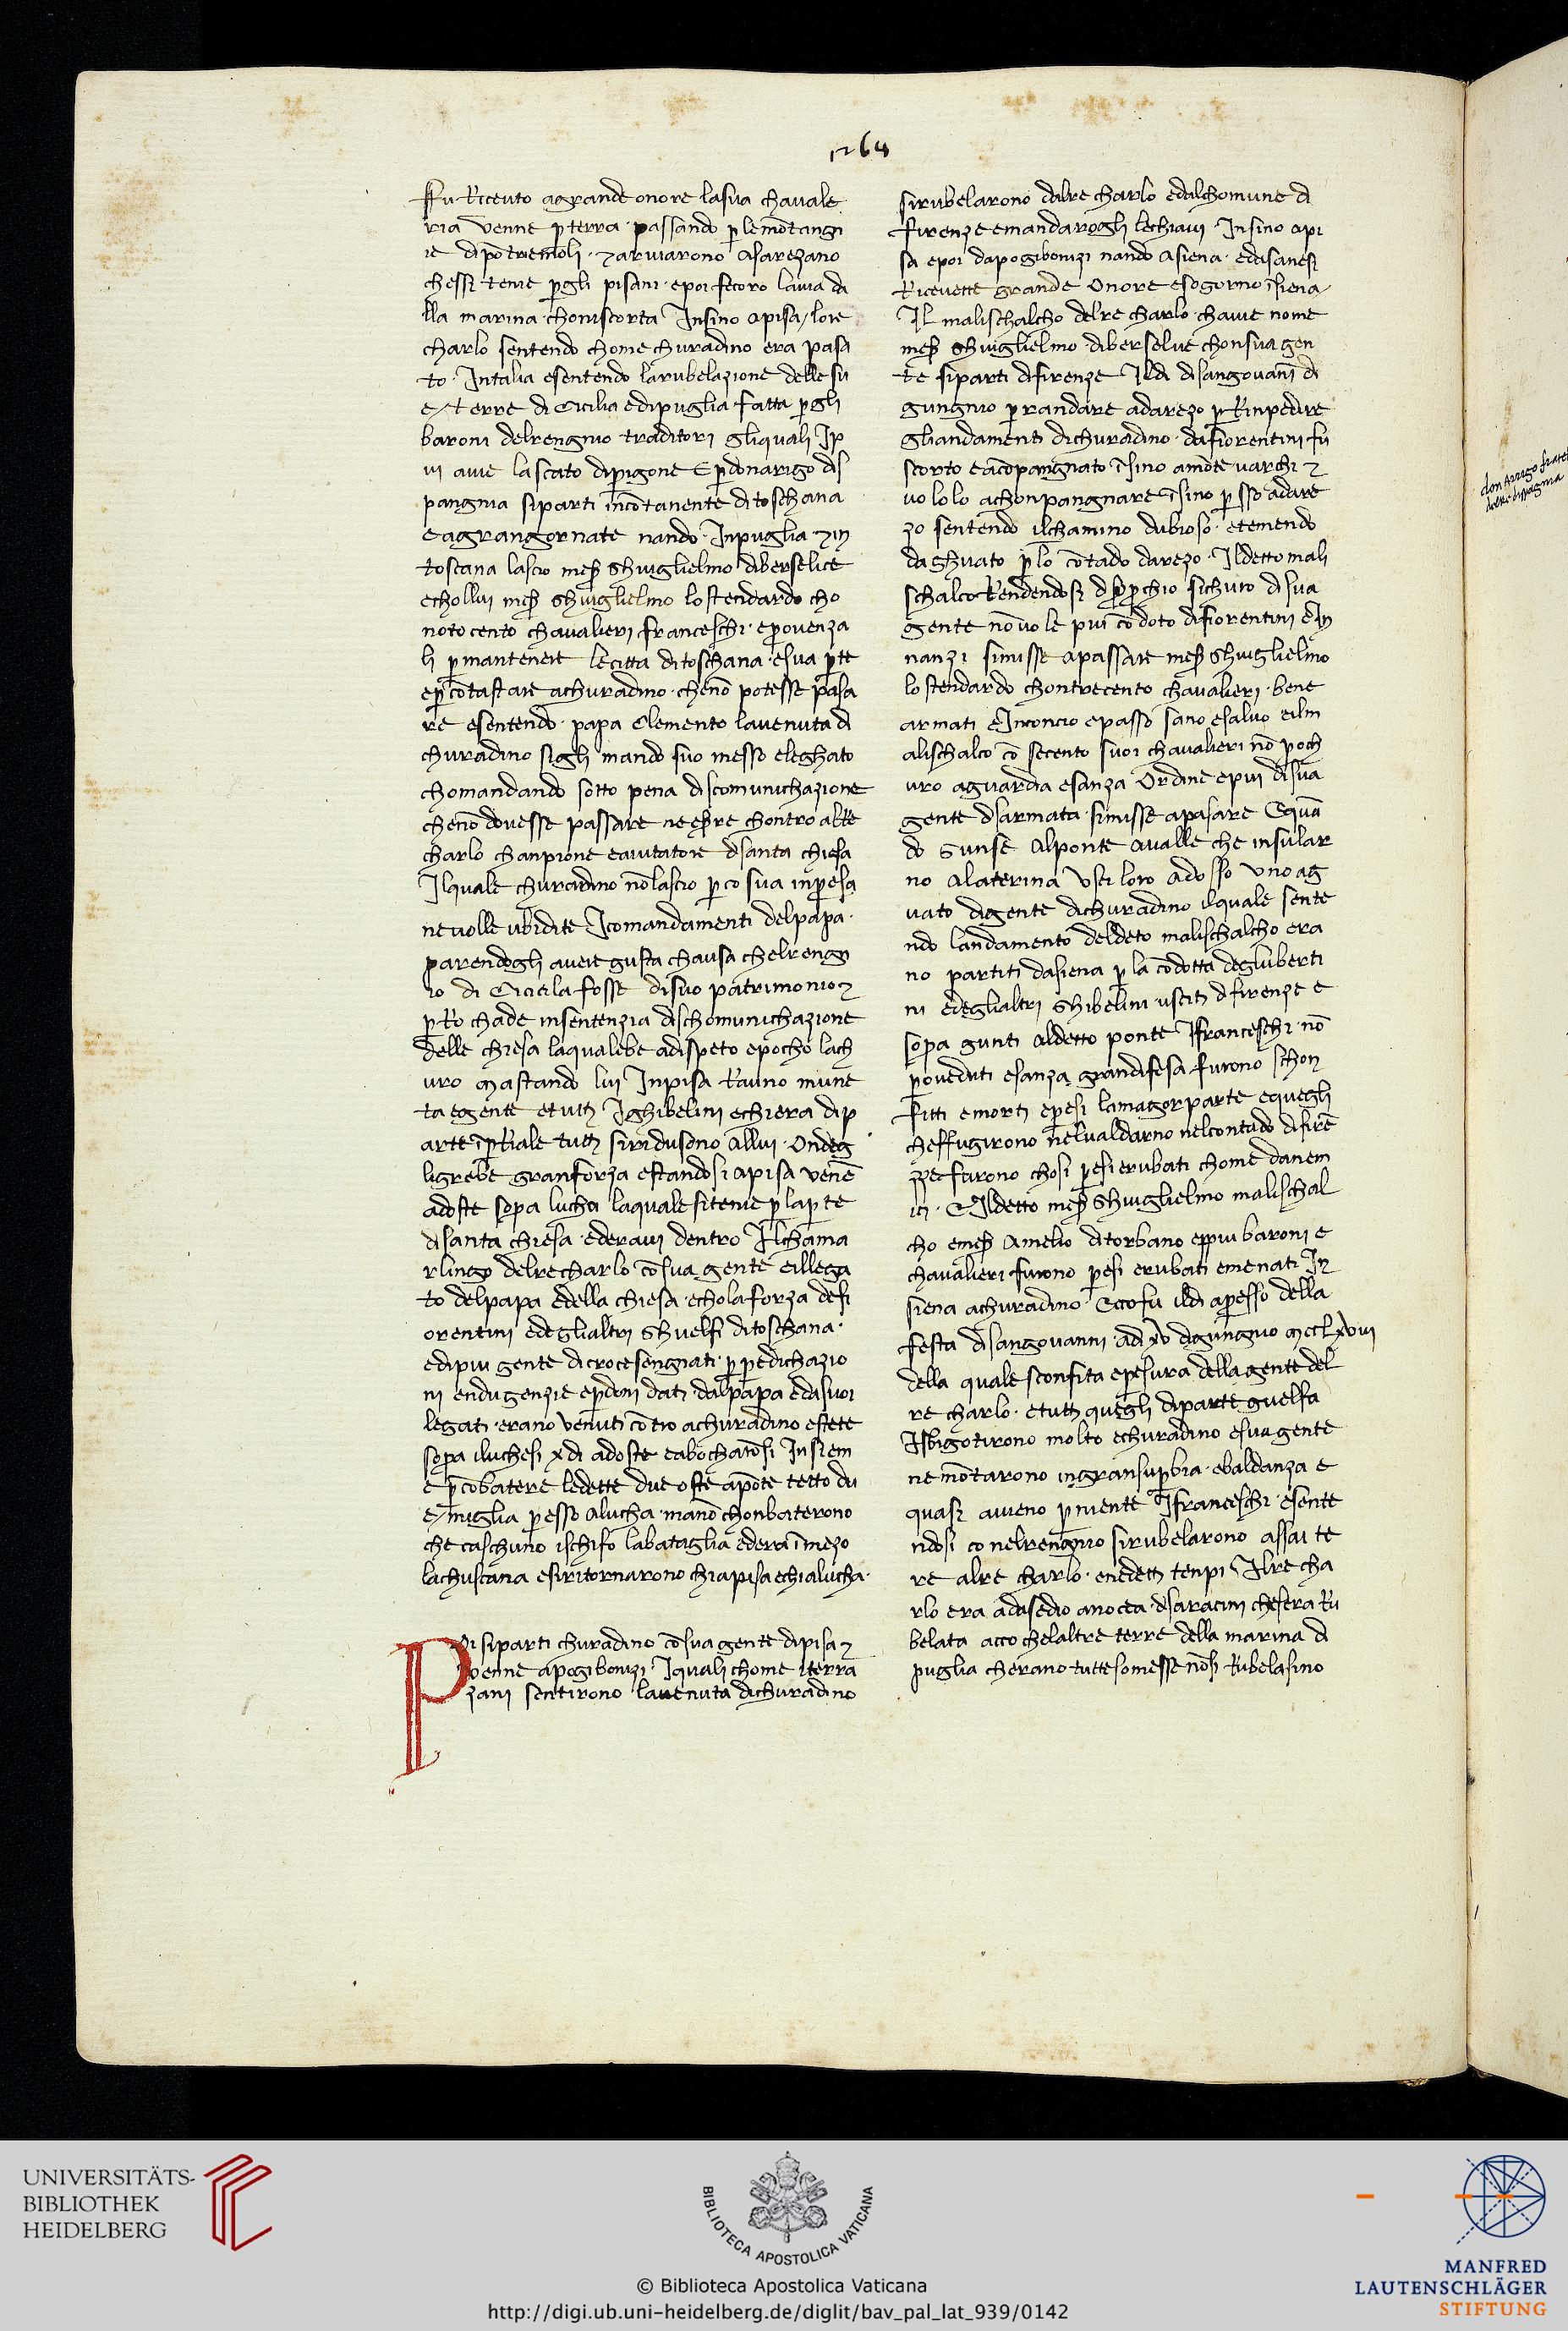 1268
Fu Riceuto agrande onore lasua chauale
ria venne p̄ terra · passando p̄ le mōtangi
ie di pōtriemoli · ⁊ ariuarono asarezano
chessi tenie p̄gli pisani · epoi fecoro lauia da
lla marina · choniscorta Insino apisa / lore
charlo sentendo chome churadino era pasa
to · Intalia esentendo larubelazione delle su
e / terre di Cicilia edipuglia fatta p̄gli
baroni delrengnio traditori gliquali Ip
ui auie lasciato dip̄igone E p̄donarigo dis
pangnia siparti incōtanente ditoschana
e agrangornate nando · Inpuglia · ⁊in
toscana lascio mes̄ Ghuiglielmo diberselice
echollui mes̄ ghuiglielmo lostendardo cho
notocento chavalieri franceschi · ep̄ouenza
li p̄ mantenere lecitta ditoschana · esua p̄te
ep̄ cōtastare achuradino · chenō potesse pasa
re esentendo · papa Clemento lauenuta di
churadino sigli mando suo messo eleghato
chomandando sotto pena discomunichazione
chenō douesse passare ne es̄re chontro alre
charlo chanpione eaiutatore disanta chiesa
Ilquale churadino nōlascio p̄co sua inp̄esa
neuolle vbidire Icomandamenti delpapa ·
parendogli auere gusta chausa chelrengn
io di Cicicila fosse disuo patrimonio ⁊
p̄Ro chade insentenzia dischomunichazione
delle chiesa laqualebe adispeto epocho lach
uro mastando lui Inpisa Rauno mune
ta egente etutti Ighibelini echiera dip
arte īp̄Riale tutti siridusono Allui · Ondeg
ligrebe granforza estandosi apisa venē
adoste sop̄a lucha laquale sitenie p̄ lap̄te
disanta chiesa · ederaui dentro Ilchama
rlingo delrecharlo cōsua gente eillega
to delpapa edella chiesa · echolaforza defi
orentini edeglialtri Ghuelfi ditoschana ·
edipiu gente dicrocesengnati · p̄ p̄edichazio
ni endugenzie ep̄doni dati dalpapa edasuoi
legati · erano venuti cōtro achuradino estete
sop̄a iluchesi x di adoste eabocharōsi Insiem
e p̄ cōbatere ledette due oste apōte tetto du
e / miglia p̄esso alucha · manō chonbaterono
che caschuno ischifo labataglia ederaī mezo
lachusciana esiritornarono chiapisa echialucha ·
Poi siparti churadino cōsua gente dipisa ⁊
venne apogibonizi · Iquali chome iterra
zani sentirono lauenuta dichuradino
sirubelarono dalre charlo edalchomune di
firenze emandarogli lechiaui · Insino api
sa epoi dapogibonizi nando asiena · edasanesi
Riceuette grande onore esogorno īsiena /
Il malischalcho delre charlo · chauie nome
mes̄ ghuiglielmo · diberselue chonsua gen
te siparti difirenze Ildi disangouani di
gungnio p̄randare adarezo p̄ Rinpedire
gliandamenti dichuradino · dafiorentini fu
scorto eacōpangnato īsino amōte varchi ⁊
uololo achonpangnare īsino p̄esso adare
zo sentendo ilchamino dubioso · etemendo
daghuato p̄ lo cōtado darezo · Ildetto mali
schalco Rendendosi sichuro disua
gente nōuole piu cōdoto difiorentini e In
nanzi simisse apassare mes̄ Ghuiglielmo
lostendardo chontrecento chavalieri · bene
armati e Inconcio epasso sano esaluo eilm
alischalco cō secento suoi chavalieri nō poch
uro aguardia esanza Ordine epiui disua
gente disarmata · simisse apasare Equā
do Gunse Alponte avalle che insular
no alaterina vsci loro adosso vno ag
uato digente dichuradino ilquale sente
ndo landamento deldeto malischalcho era
no partiti dasiena p̄ la cōdotta degluberti
ni edeglialtri Ghibelini vsciti difirenze e
sop̄a gunti aldetto ponte Ifranceschi · nō
p̄oueduti esanza grandifesa furono schon
fitti emorti ep̄esi lamagorparte equegli
cheffugirono neluualdarno nelcontado difirē
ze furono chosi p̄esi erubati chome danem
ici · Eildetto mes̄ Ghuiglielmo malischal
cho emes̄ Amelio ditorbano eppiu baroni e
chavalieri furono p̄esi erubati emenati In
siena achuradino · Eccofu ildi ap̄esso della
festa disangouanni · adi xxv digungnio mcclxviii
della quale sconfita ep̄esura dellagente del
re charlo · etutti quegli diparte guelfa
Isbigotirono molto echuradino esuagente
ne mōtarono ingransup̄bia · ebaldanza e
quasi auieno p̄niente Ifranceschi · esente
ndosi co nelrengnio sirubelarono assai te
re alre charlo · enedetti tenpi Ilre cha
rlo era adasedio anocea · disaracini chesera Ru
belata acco chelaltre terre della marina di
puglia cherano tutte somesse nōsi Rubelasino
don Arrigo fratel